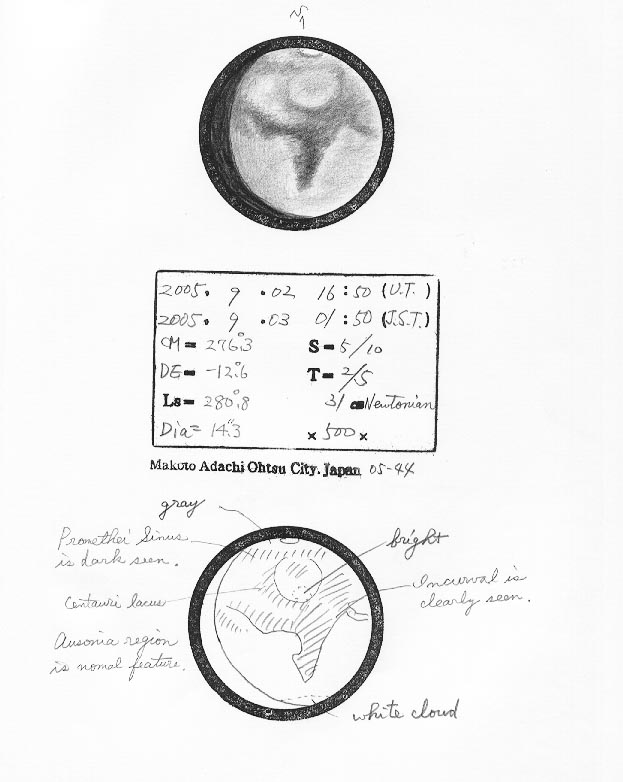 2005. 9 .02 16:50 (U.T.)
2005. 9 .03 01:50 (J.S.T.)
CM= 276.°3 S=5/10
DE= -12.°6 T=2/5
Ls= 280.°8 31 cmNewtonian
Dia= 14."3 × 500 ×
Makoto Adachi Ohtsu City. Japan 05-44
gray
Promethei Sinus
is dark seen.
bright
Incurval is
clearly seen.
Centauri lacus
Ausonia region
is nomal feature.
white cloud